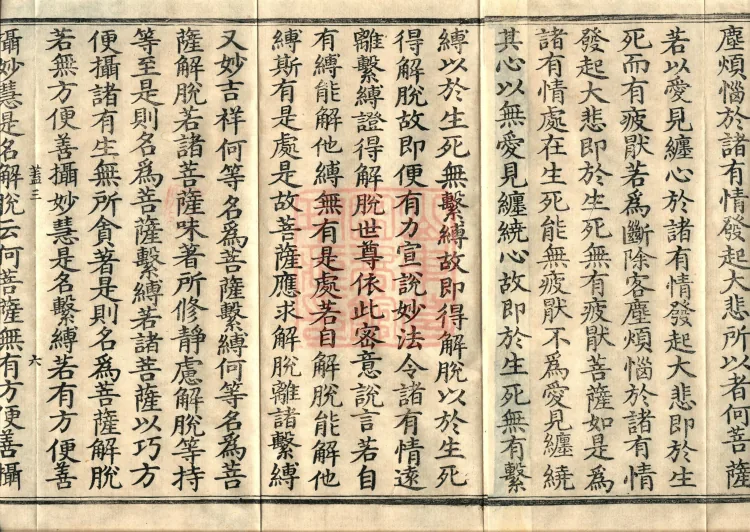 塵煩惱於諸有情發起大悲所以者何菩薩
若以愛見纏心於諸有情發起大悲即於生
死而有疲厭若為斷除客塵煩惱於諸有情
發起大悲即於生死無有疲厭菩薩如是為
諸有情處在生死能無疲厭不為愛見纏繞
其心以無愛見纏繞心故即於生死無有繫
縛以於生死無繫縛故即得解脫以於生死
得解脫故即便有力宣說妙法令諸有情遠
離繫縛證得解脫世尊依此密意說言若自
有縛能解他縛無有是處若自解脫能解他
縛斯有是處是故菩薩應求解脫離諸繫縛
又妙吉祥何等名為菩薩繫縛何等名為菩
薩解脫若諸菩薩味著所修靜慮解脫等持
等至是則名為菩薩繫縛若諸菩薩以巧方
便攝諸有生無所貪著是則名為菩薩解脫
若無方便善攝妙慧是名繫縛若有方便善
蓋三 六
攝妙慧是名解脫云何菩薩無有方便善攝